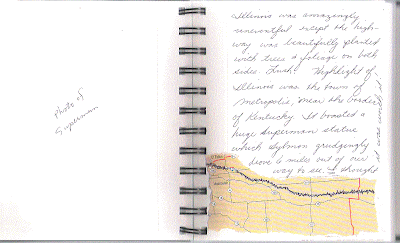 Photo of
Superman
Illinois was amazingly
uneventful except the high-
way was beautifully planted
with trees & foliage on both
sides. Lush! Highlight of
Illinois was the town of
Metropolis, near the border
of Kentucky. It boasted a
huge Superman statue
which Sylmon grudgingly
drove 6 miles out of our
way to see. I thought
it was